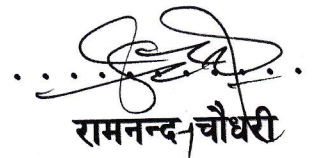 रामनन्द चौधरी